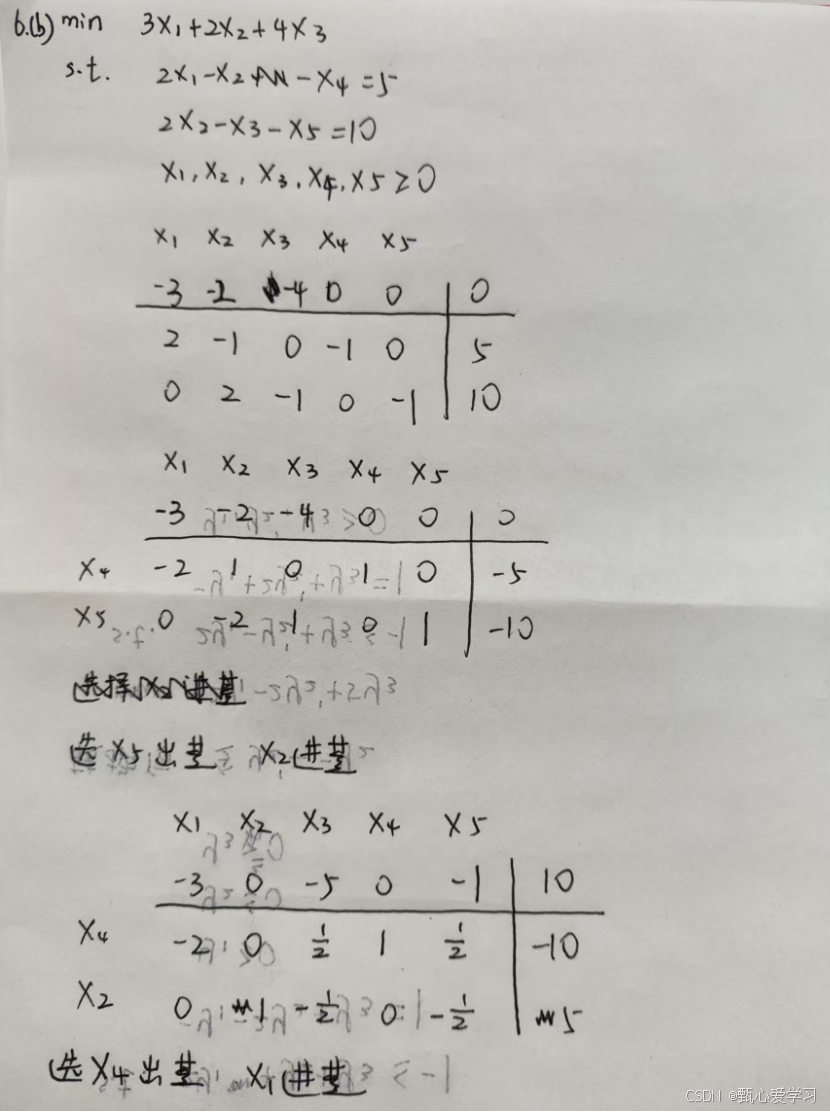 6.(b) min 3X1+2X2+4X3
s.t. 2X1-X2 -X4=5
2X2-X3-X5=10
X1,X2,X3,X4,X5≥0
X1 X2 X3 X4 X5
-3 -2 -4 0 0 0
2 -1 0 -1 0 5
0 2 -1 0 -1 10
X1 X2 X3 X4 X5
-3 -2 -4 0 0 0
X4 -2 1 0 1 0 -5
X5 0 -2 1 0 1 -10
选择X2进基
选X5出基 X2进基
X1 X2 X3 X4 X5
-3 0 -5 0 -1 10
X4 -2 0 1/2 1 1/2 -10
X2 0 1 -1/2 0 -1/2 5
选X4出基 X1进基
CSDN @甄心爱学习